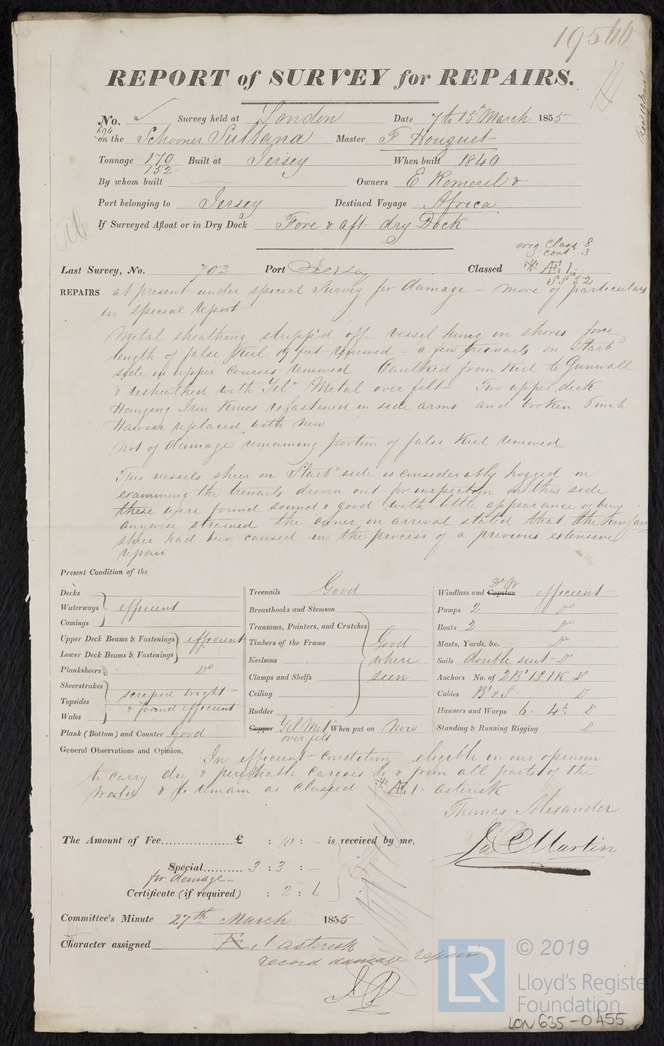 19566
REPORT of SURVEY for REPAIRS.
No. Survey held at London Date 7th to 15th March 1855
on the Schooner Sultana Master F Houguet
Tonnage 170 Built at Jersey When built 1840
152
By whom built Owners E Romeril &
Port belonging to Jersey Destined Voyage Africa
If Surveyed Afloat or in Dry Dock Fore & aft dry Dock
orig Class 8
cont 3
Last Survey, No. 703 Port Jersey Classed Æ 1.
SS 52
REPAIRS at present under special Survey for damage - more of particulars
in special report
Metal sheathing stripp'd off vessel hung on shores fore
length of false Keel 19 feet renewed - a few treenails on Starb
side in upper courses renewed Caulked from Keel to Gunwall
& resheathed with Yel Metal over felt Two upper deck
Hanging Iron Knees refastened in side arms and broken 6 inch
Hawser replaced with New
not of damage remaining portion of false Keel renewed
This vessels sheer on Starb side is considerably hogged on
examining the trenails driven out for inspection on that side
these were found sound & good with little appearance of being
anywise strained the owner on arrival stated that the
sheer had been caused in the process of a previous extensive
repair
Present Condition of the
Decks
Waterways efficient
Comings
Upper Deck Beams & Fastenings efficient
Lower Deck Beams & Fastenings
Planksheers do
Sheerstrakes
Topsides scraped bright
Wales & found efficient
Plank (Bottom) and Counter Good
Treenails Good
Breasthooks and Stemson
Transoms, Pointers, and Crutches
Timbers of the Frame Good
Keelsons where
Clamps and Shelfs seen
Ceiling
Rudder
Copper Yel Met When put on Now
over felt
Windlass and Capstan efficient
Pumps 2 do
Boats 2 do
Masts, Yards, &c. do
Sails double suit do
Anchors No. of 2B 1S 1K do
Cables do
Hawsers and Warps 6 - 4½ do
Standing & Running Rigging do
General Observations and Opinion, In efficient condition eligible in our opinion
to carry dry & perishable cargoes to & from all parts of the
World & to remain as classed Æ 1 asterisk
Thomas Alexander
Jas Martin
The Amount of Fee £ : 10 : - is received by me,
Special 3 : 3 : -
for damage
Certificate (if required) : 2 : 6
Committee's Minute 27th March 1855
Character assigned Æ 1 asterisk
record damage repair
© 2019
LR
Lloyd's Registe
Foundation
LON 635-0455